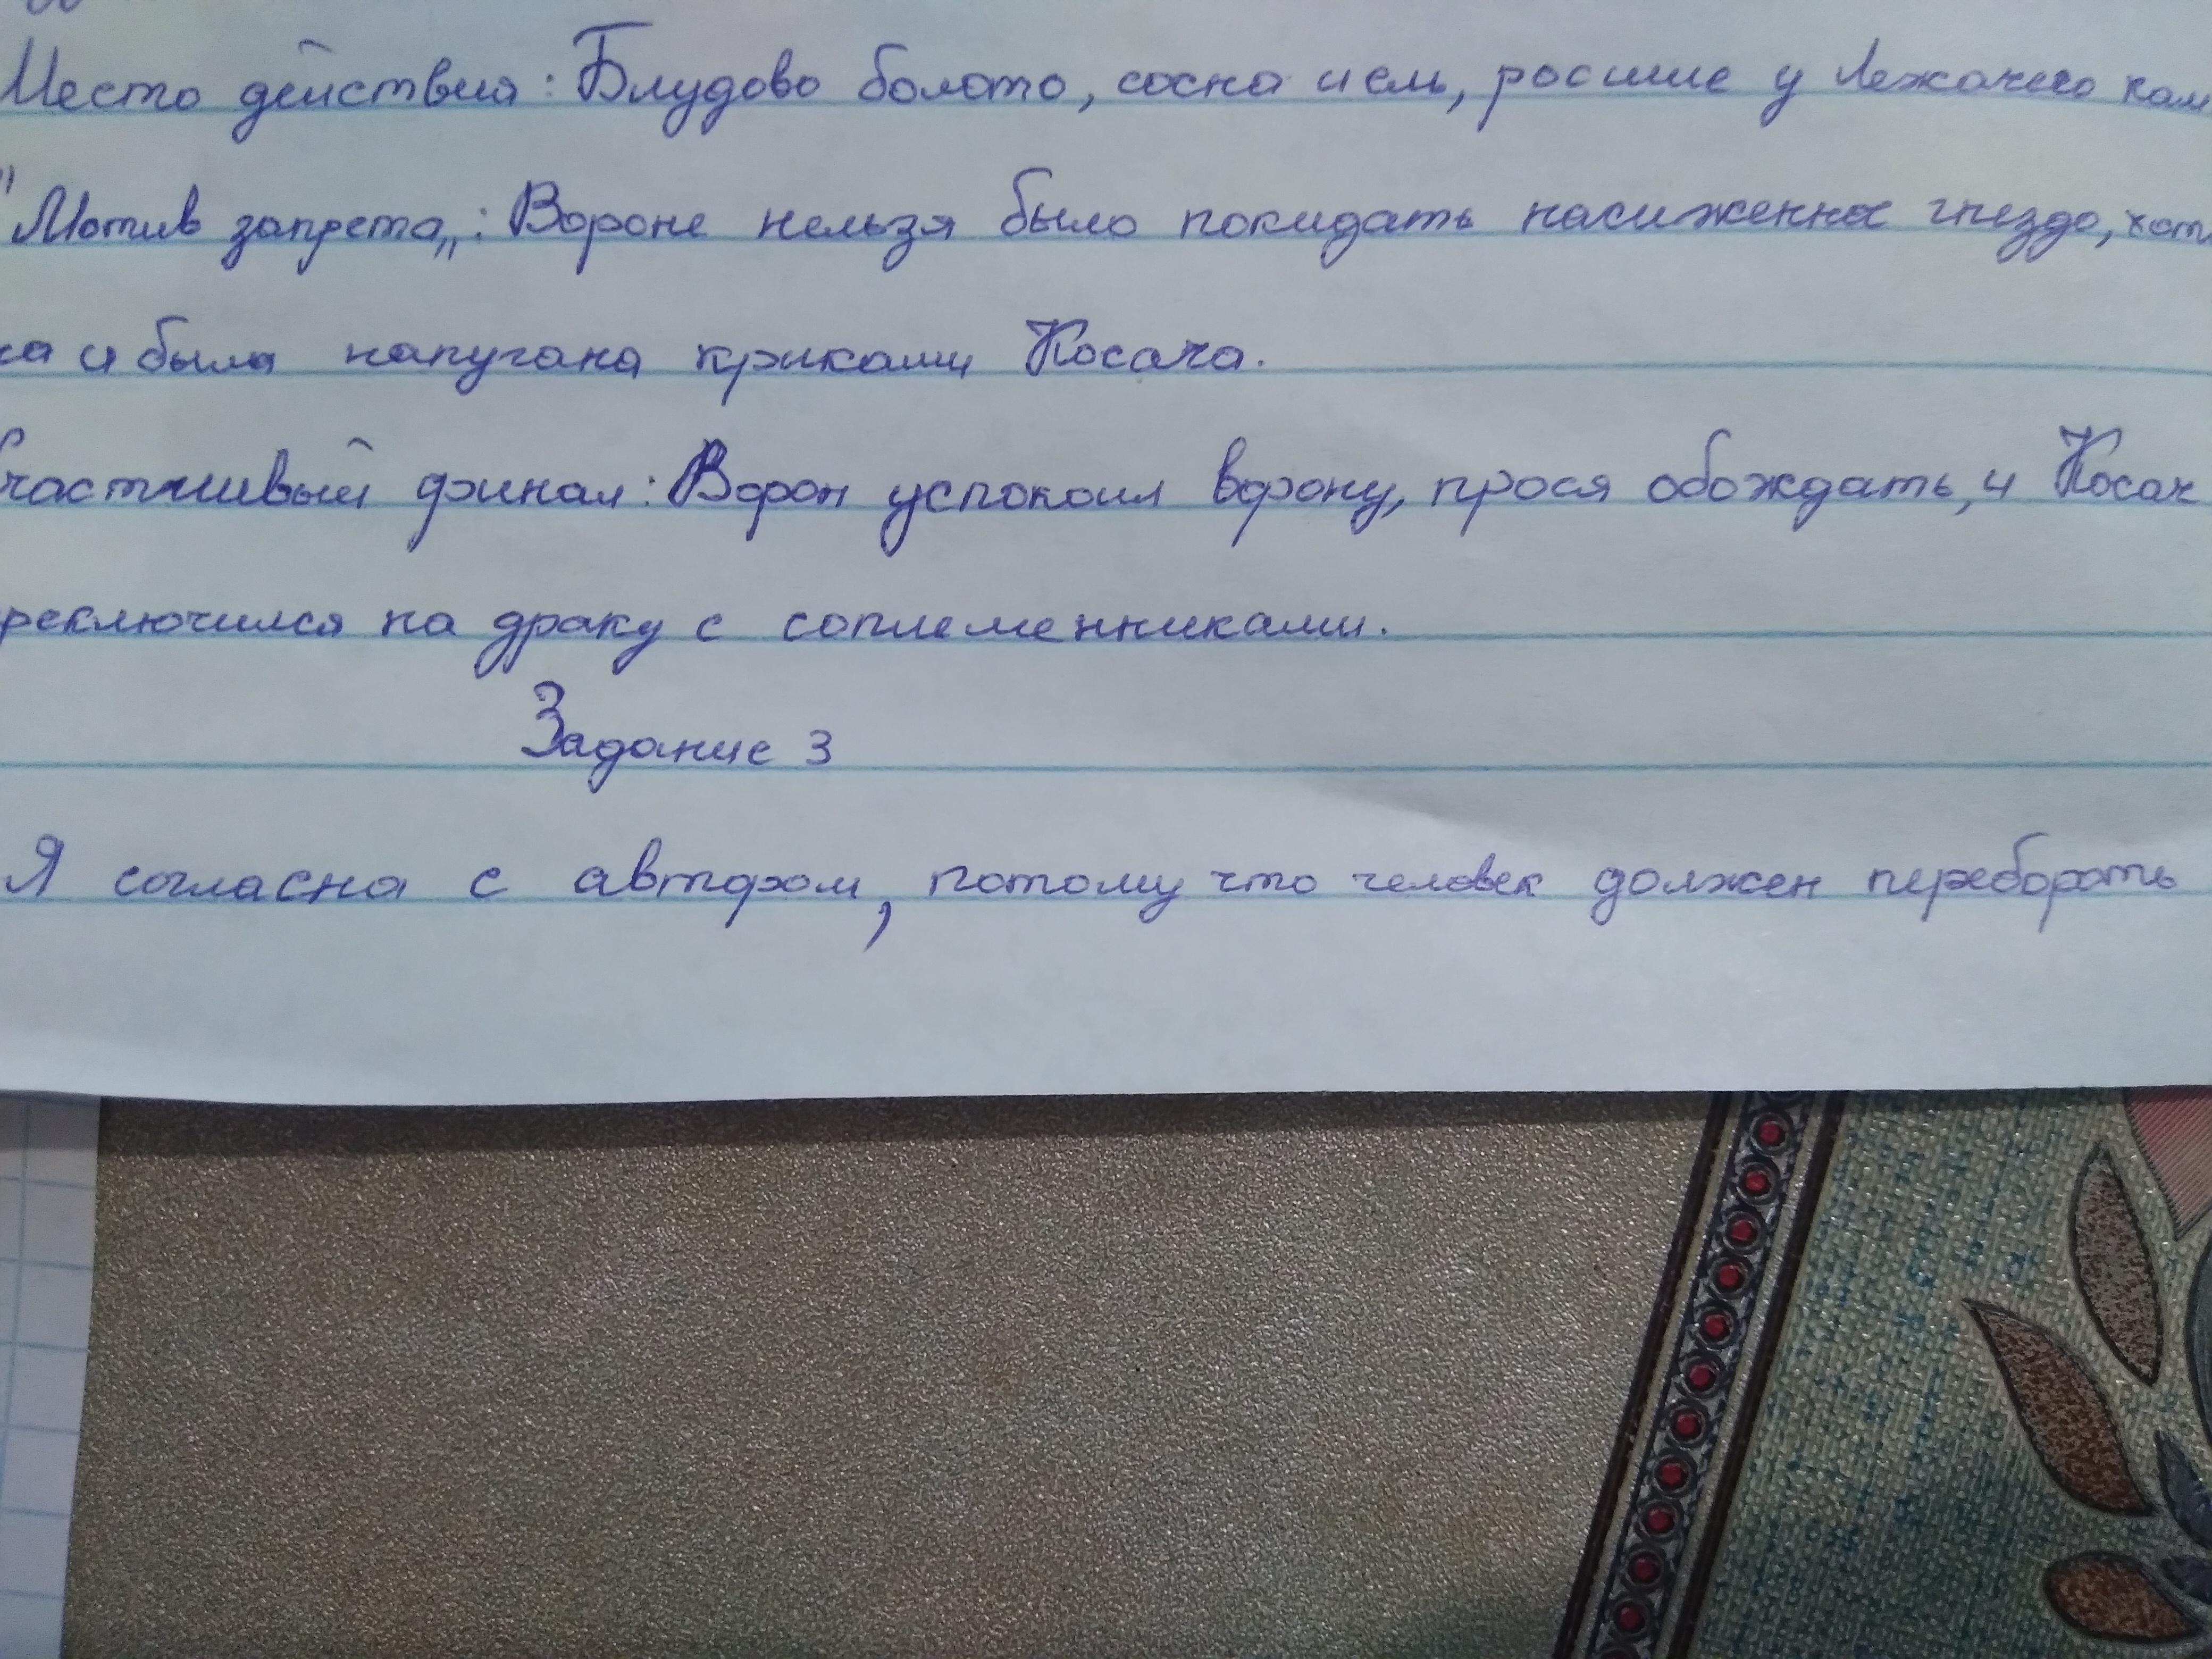 Место действия: Блудово болото, сосна и ель, росшие у Лежачего кам
"Мотив запрета„: Вороне нельзя было покидать насиженное гнездо, хот
на и была напугана криками Косача.
Счастливый финал: Ворон успокоил ворону, прося обождать, и Косач
реключился на драку с соплеменниками.
Задание 3
Я согласна с автором, потому что человек должен перебороть